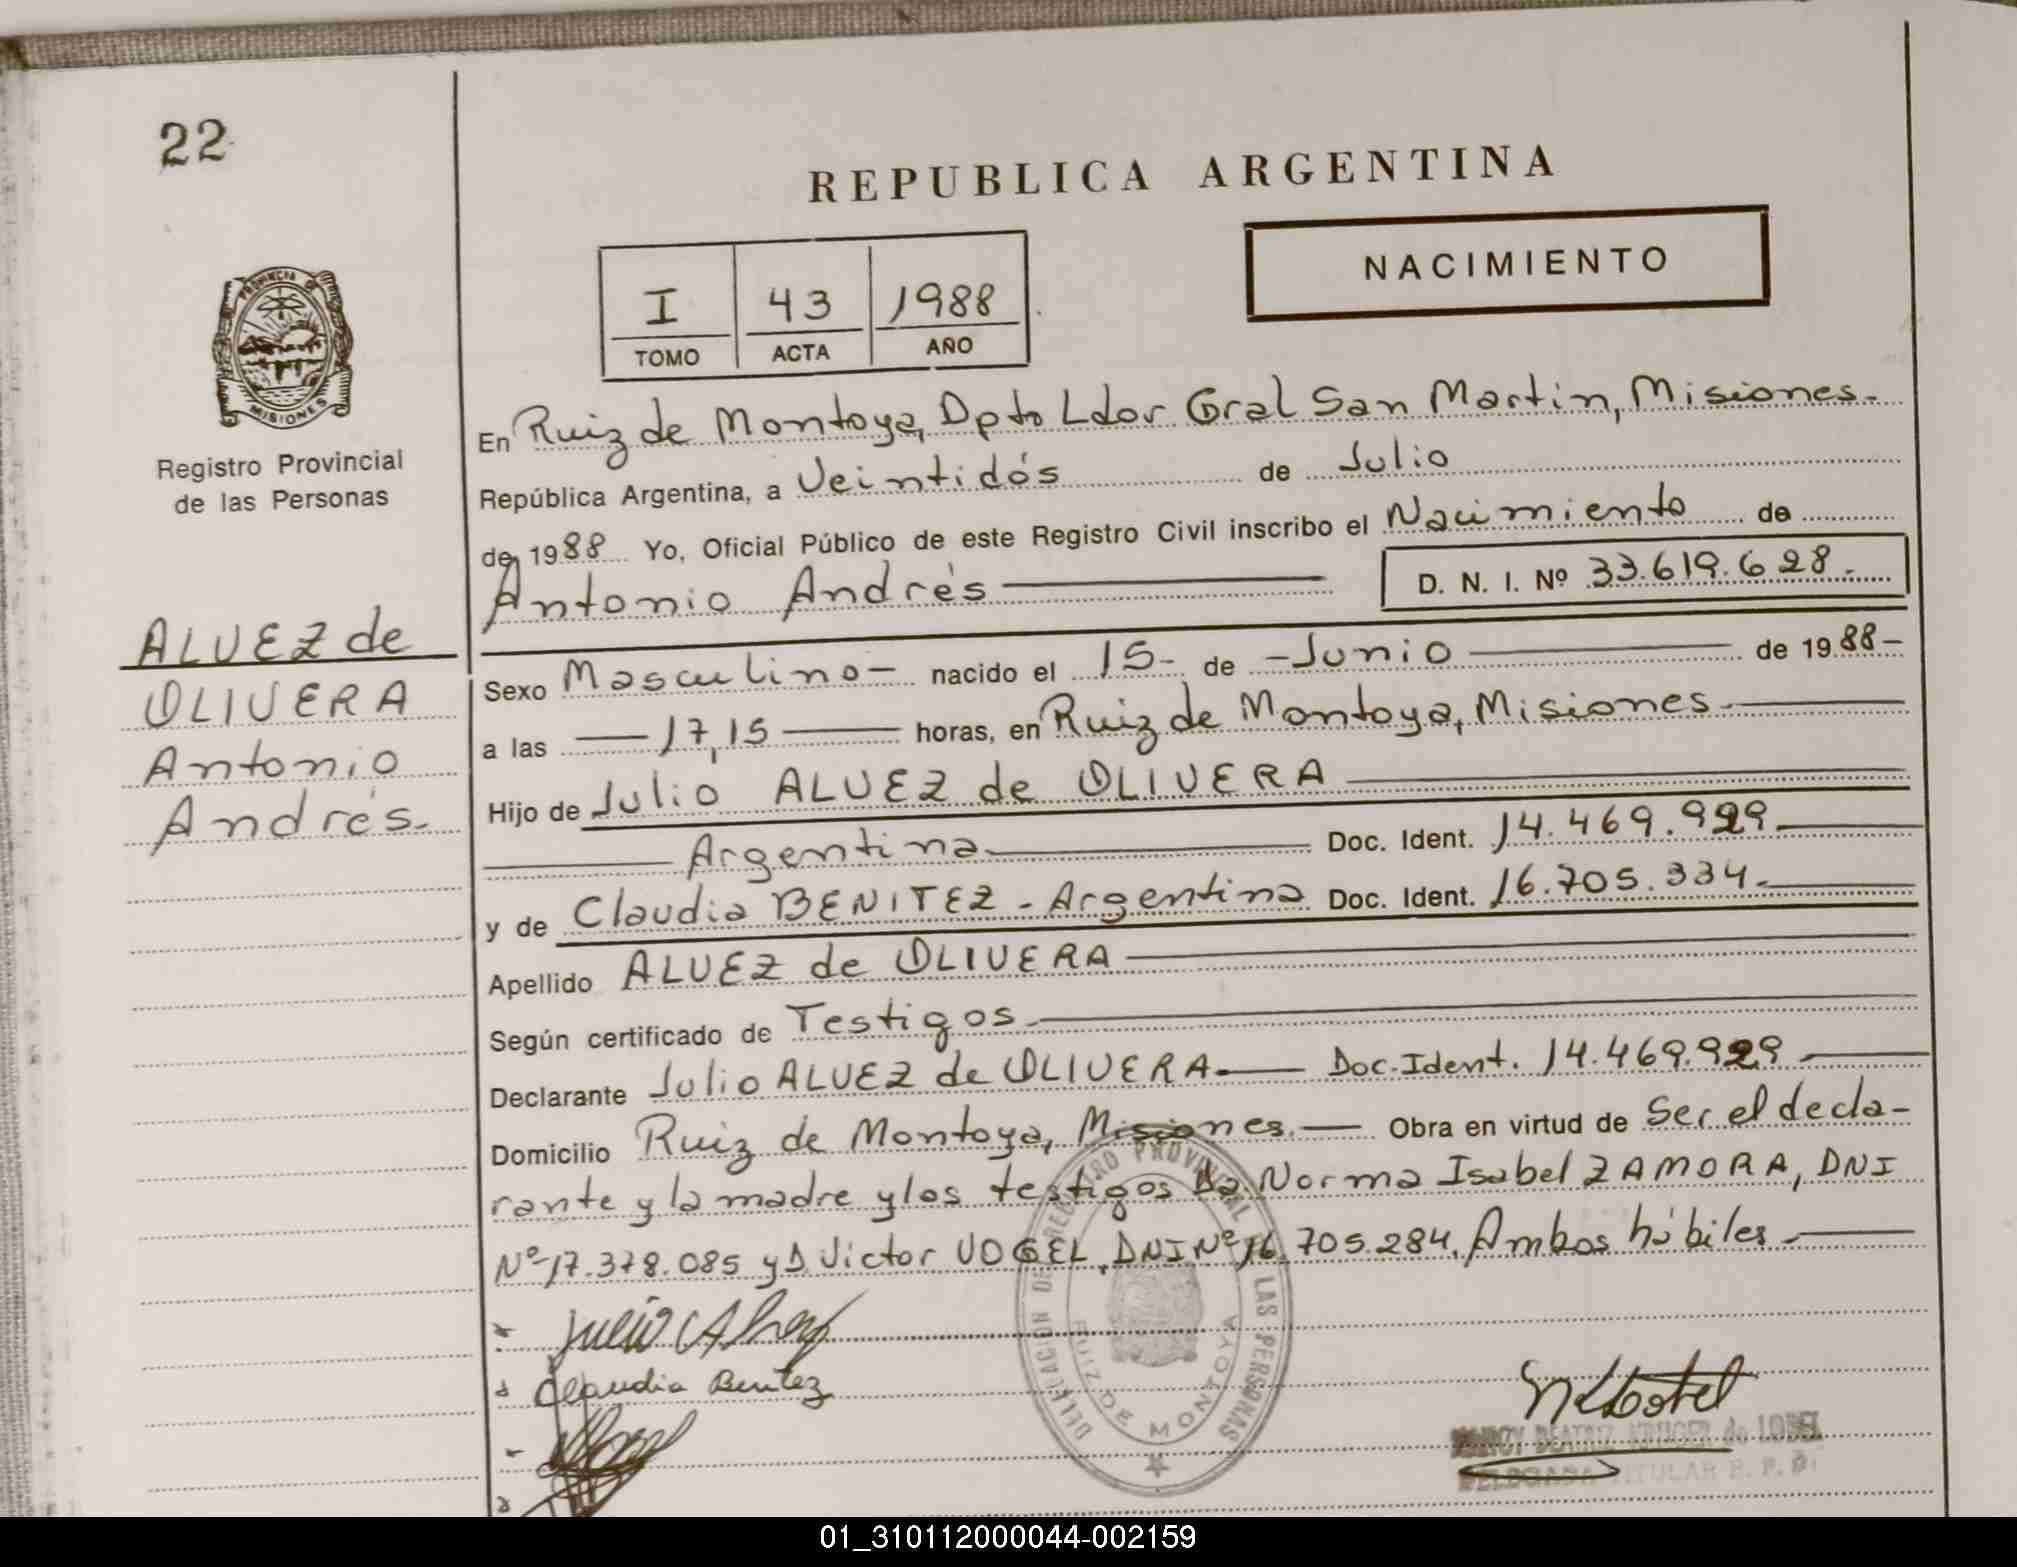 22
REPUBLICA ARGENTINA
NACIMIENTO
I 43 1988
TOMO ACTA AÑO
PROVINCIA DE
MISIONES
Registro Provincial
de las Personas
En Ruiz de Montoya, Dpto Ldor Gral San Martin, Misiones.
República Argentina, a Veintidós de Julio
de 1988 Yo, Oficial Público de este Registro Civil inscribo el Nacimiento de
Antonio Andrés D. N. I. Nº 33.619.628.
ALVEZ de
OLIVERA
Antonio
Andrés.
Sexo Masculino - nacido el 15- de -Junio de 1988-
a las 17,15 horas, en Ruiz de Montoya, Misiones
Hijo de Julio ALVEZ de OLIVERA
Argentina Doc. Ident. 14.469.929
y de Claudia BENITEZ - Argentina Doc. Ident. 16.705.334.
Apellido ALVEZ de OLIVERA
Según certificado de Testigos
Declarante Julio ALVEZ de OLIVERA Doc. Ident. 14.469.929
Domicilio Ruiz de Montoya, Misiones. Obra en virtud de Ser el decla-
rante y la madre y los testigos Da Norma Isabel ZAMORA, DNI
Nº 17.378.085 y D Victor VOGEL, DNI Nº 16.705.284. Ambos hábiles
DELEGACION DE REGISTRO PROVINCIAL LAS PERSONAS
RUIZ DE MONTOYA
Claudia Benitez
BEATRIZ KRUGER de LOBEL
DELEGADA TITULAR R. P. P.
01_310112000044-002159